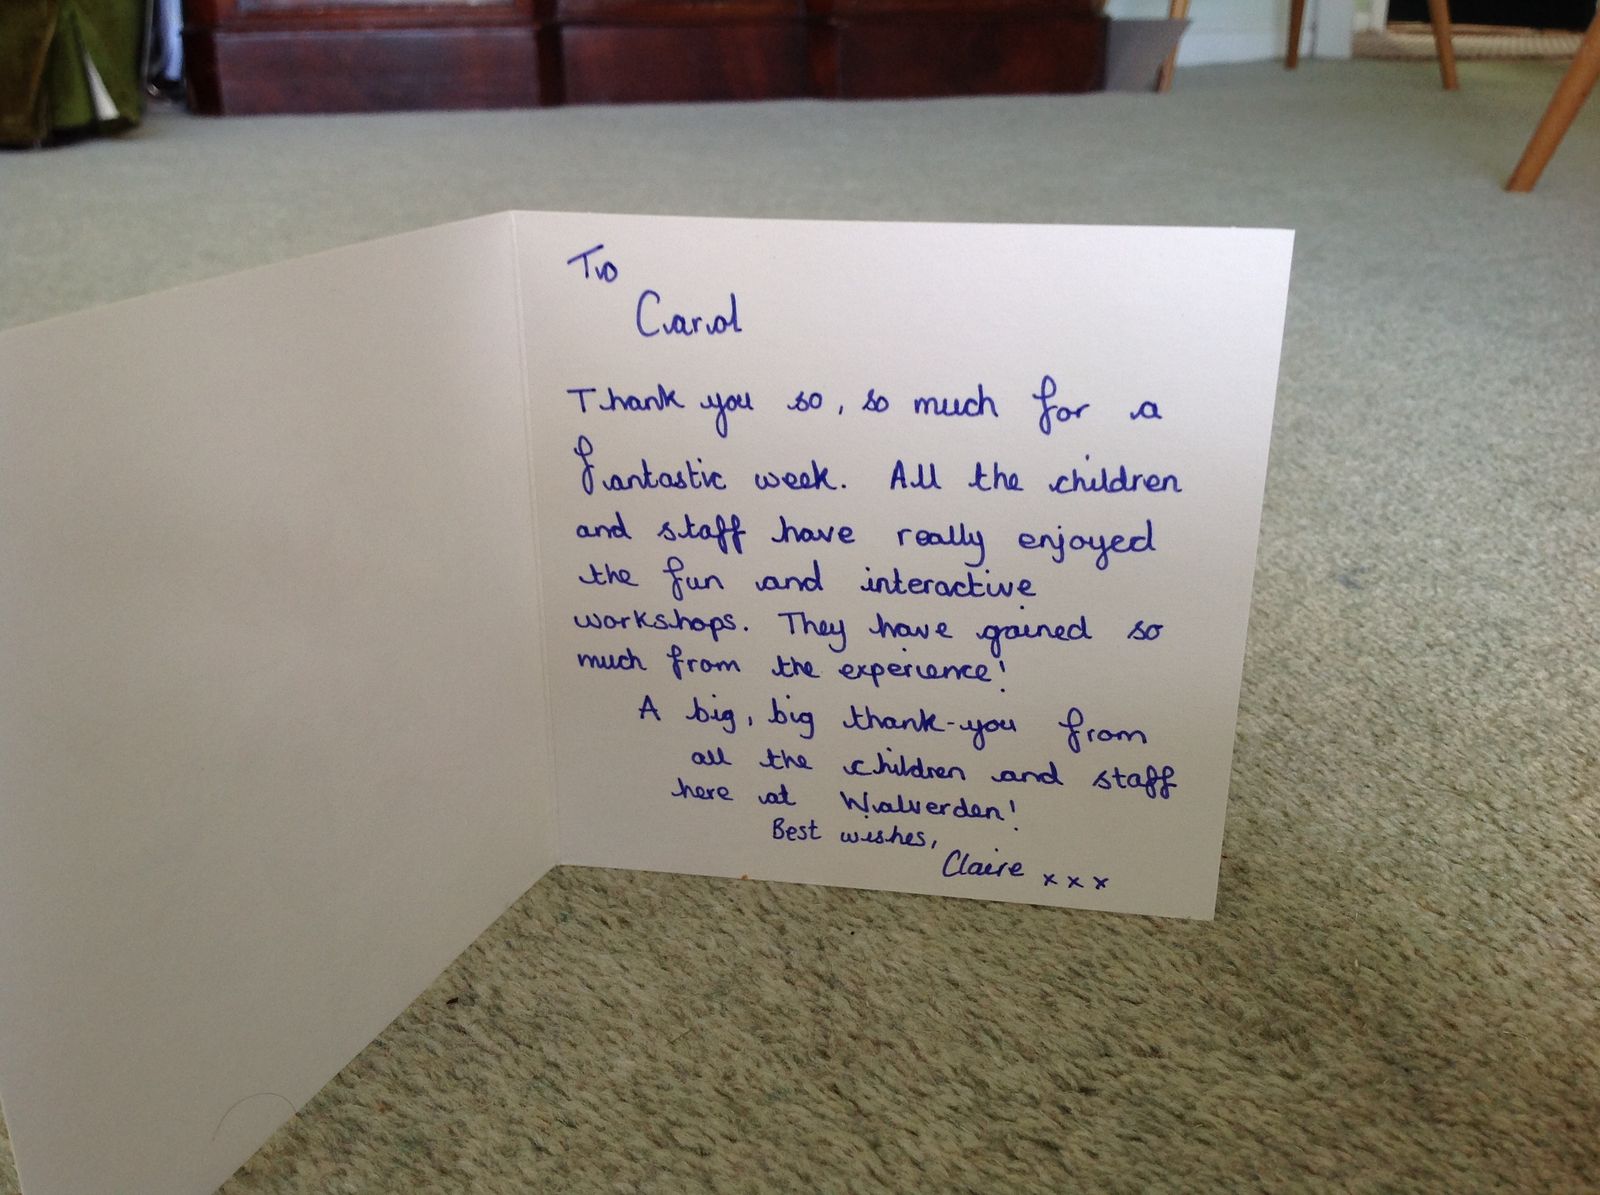 To
Carol
Thank you so, so much for a
fantastic week. All the children
and staff have really enjoyed
the fun and interactive
workshops. They have gained so
much from the experience!
A big, big thank-you from
all the children and staff
here at Walverden!
Best wishes,
Claire xxx